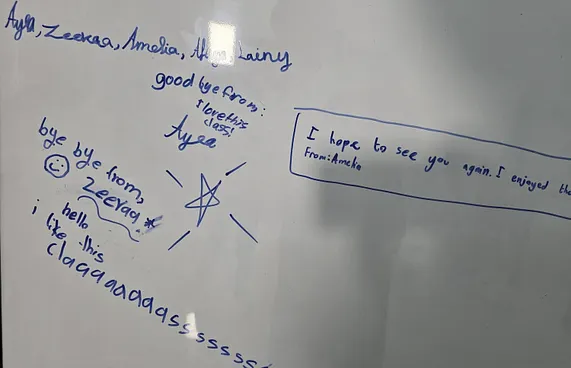 Ayra, Zeeraa, Amelia, Lainy
good bye from:
I love this
class!
Ayra
bye bye from,
Zeeraa
I hope to see you again. I enjoyed the
From: Amelia
hello
i like this
claqqaaaaasssssss